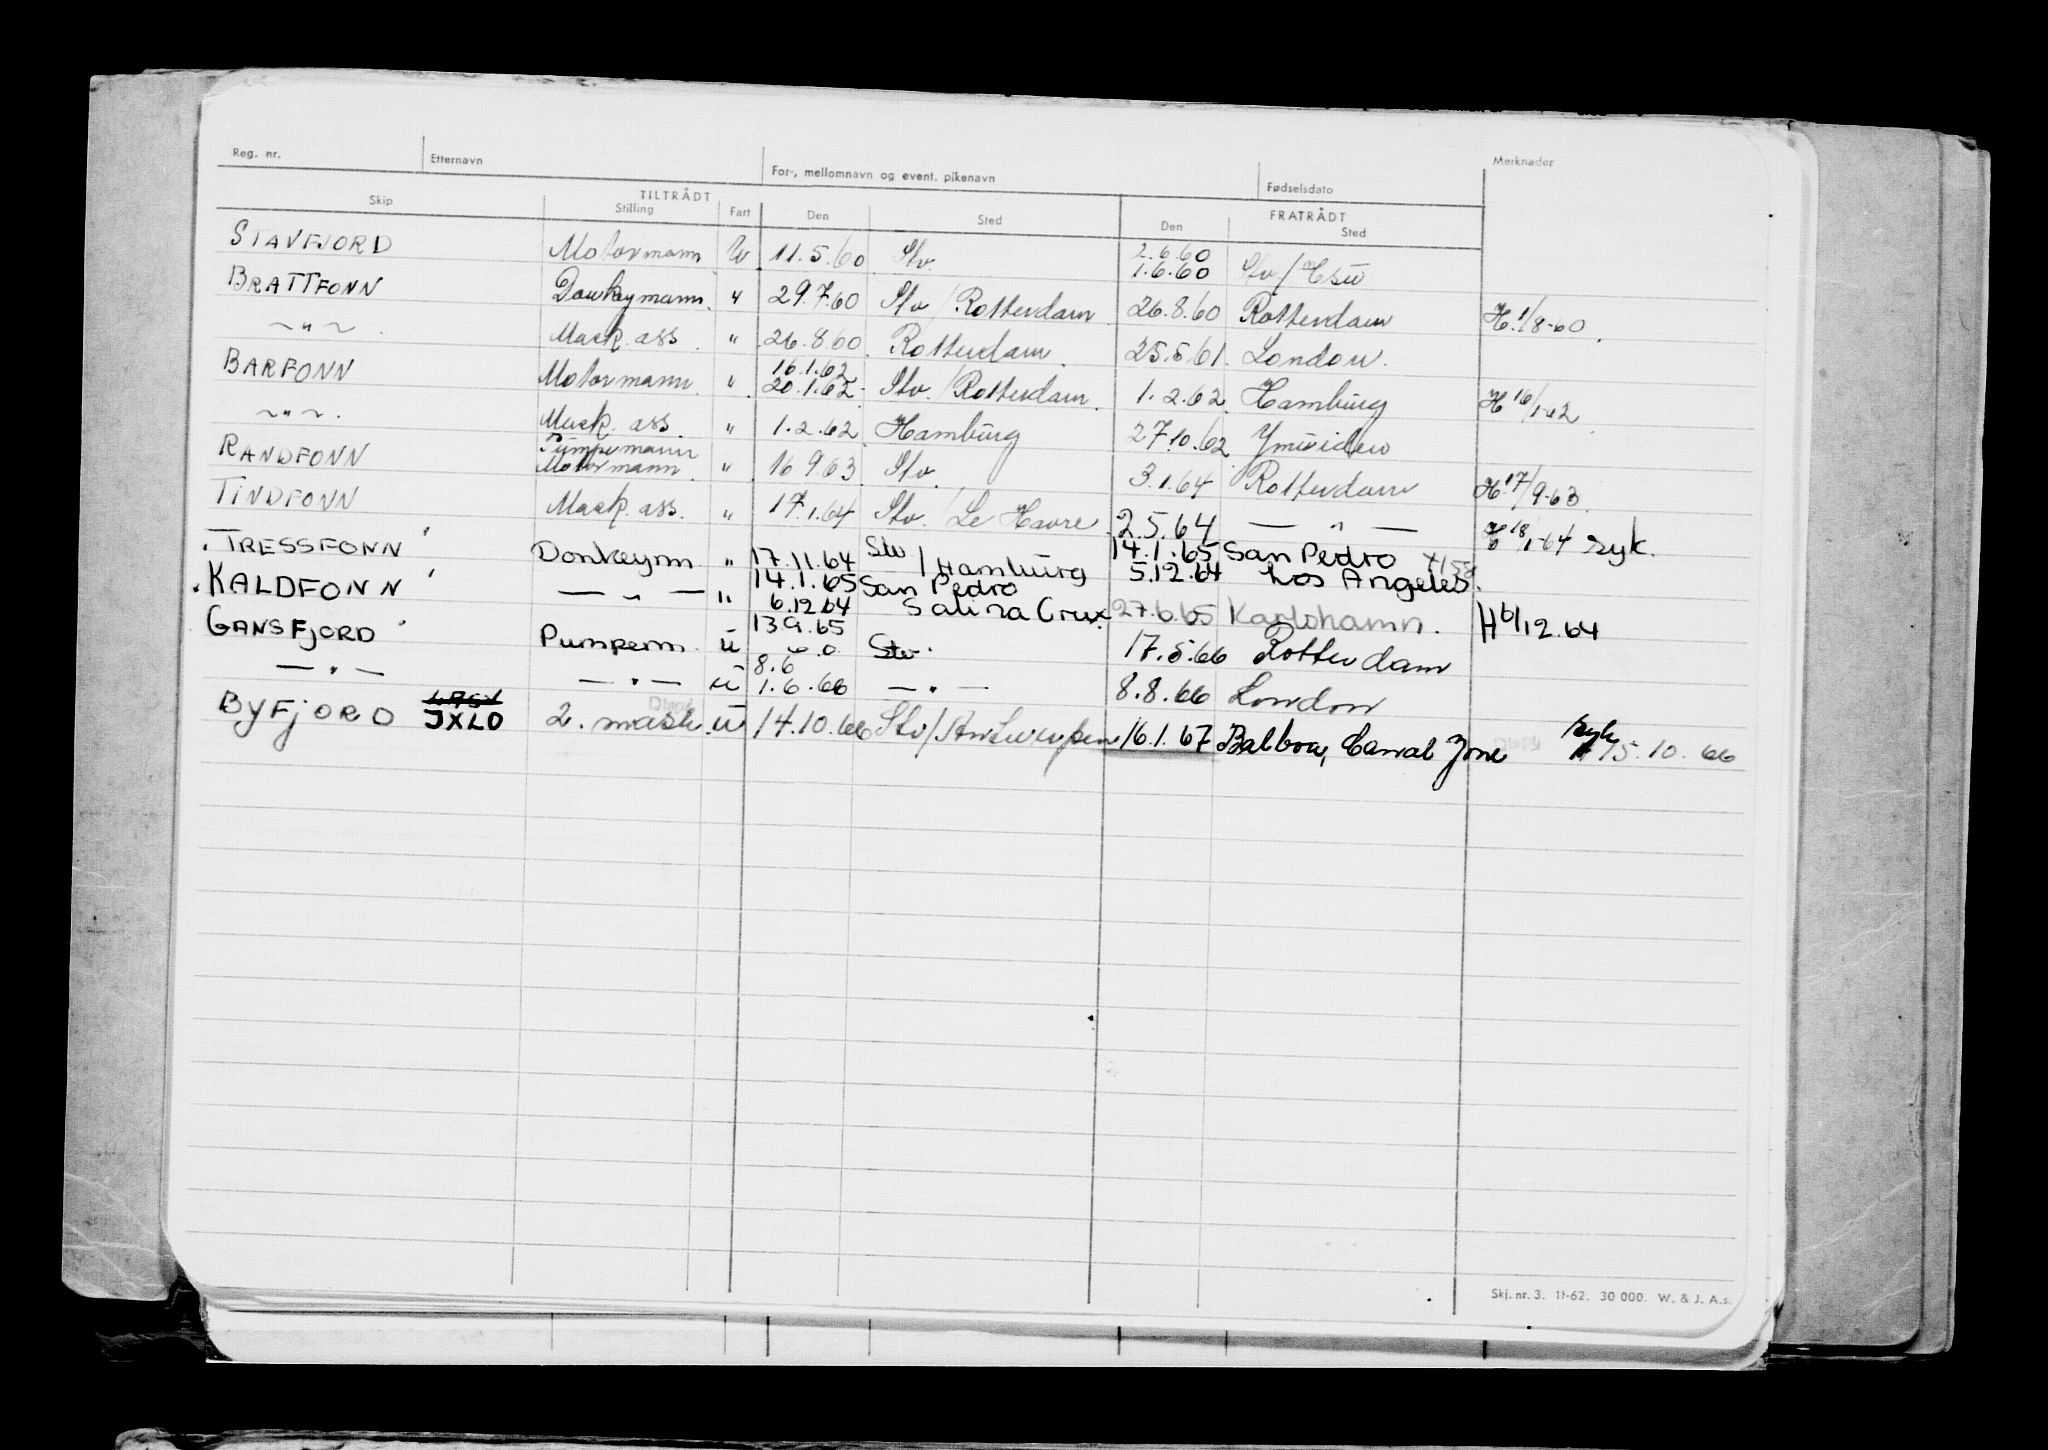 Reg. nr. Etternavn For-, mellomnavn og event. pikenavn Fødselsdato Merknader
TILTRÅDT FRATRÅDT
Skip Stilling Fart Den Sted Den Sted
STAVFJORD Motormann U 11.5.60 Stv. 2.6.60 1.6.60 Stv./
BRATTFONN Donkeymann " 29.7.60 Stv/Rotterdam 26.8.60 Rotterdam H.1/8-60
~"~ Mask. ass " 26.8.60 Rotterdam 25.5.61 London.
BARFONN Motormann " 16.1.62 20.1.62 Stv./Rotterdam 1.2.62 Hamburg H16/1-62
~"~ Mask. ass. " 1.2.62 Hamburg 27.10.62 Ymuiden
RANDFONN Pumpemann Motormann " 16 9.63 Stv. 3.1.64 Rotterdam H.17/9-63
TINDFONN Mask. ass. " 17.1.64 Stv./Le Havre 2.5.64 — " — 18/1-64 syk.
TRESSFONN Donkeym " 17.11.64 Stv/Hamburg 14.1.65 San Pedro 5.12.64 Los Angeles.
KALDFONN — " — " 14.1.65 San Pedro 6.12.64 Salina Crux 27.6.65 Karlshamn. H6/12.64
GANSFJORD Pumpem. U 13.9.65 Stv. 17.5.66 Rotterdam
— " — — " — U 8.6 1.6.66 — " — 8.8.66 London
BYFJORD JXLO 2. mask U 14.10.66 Stv/Antwerpen 16.1.67 Balboa, Canal Zone syk 15.10.66
Skj. nr. 3. 11-62. 30 000. W. & J. A.s.